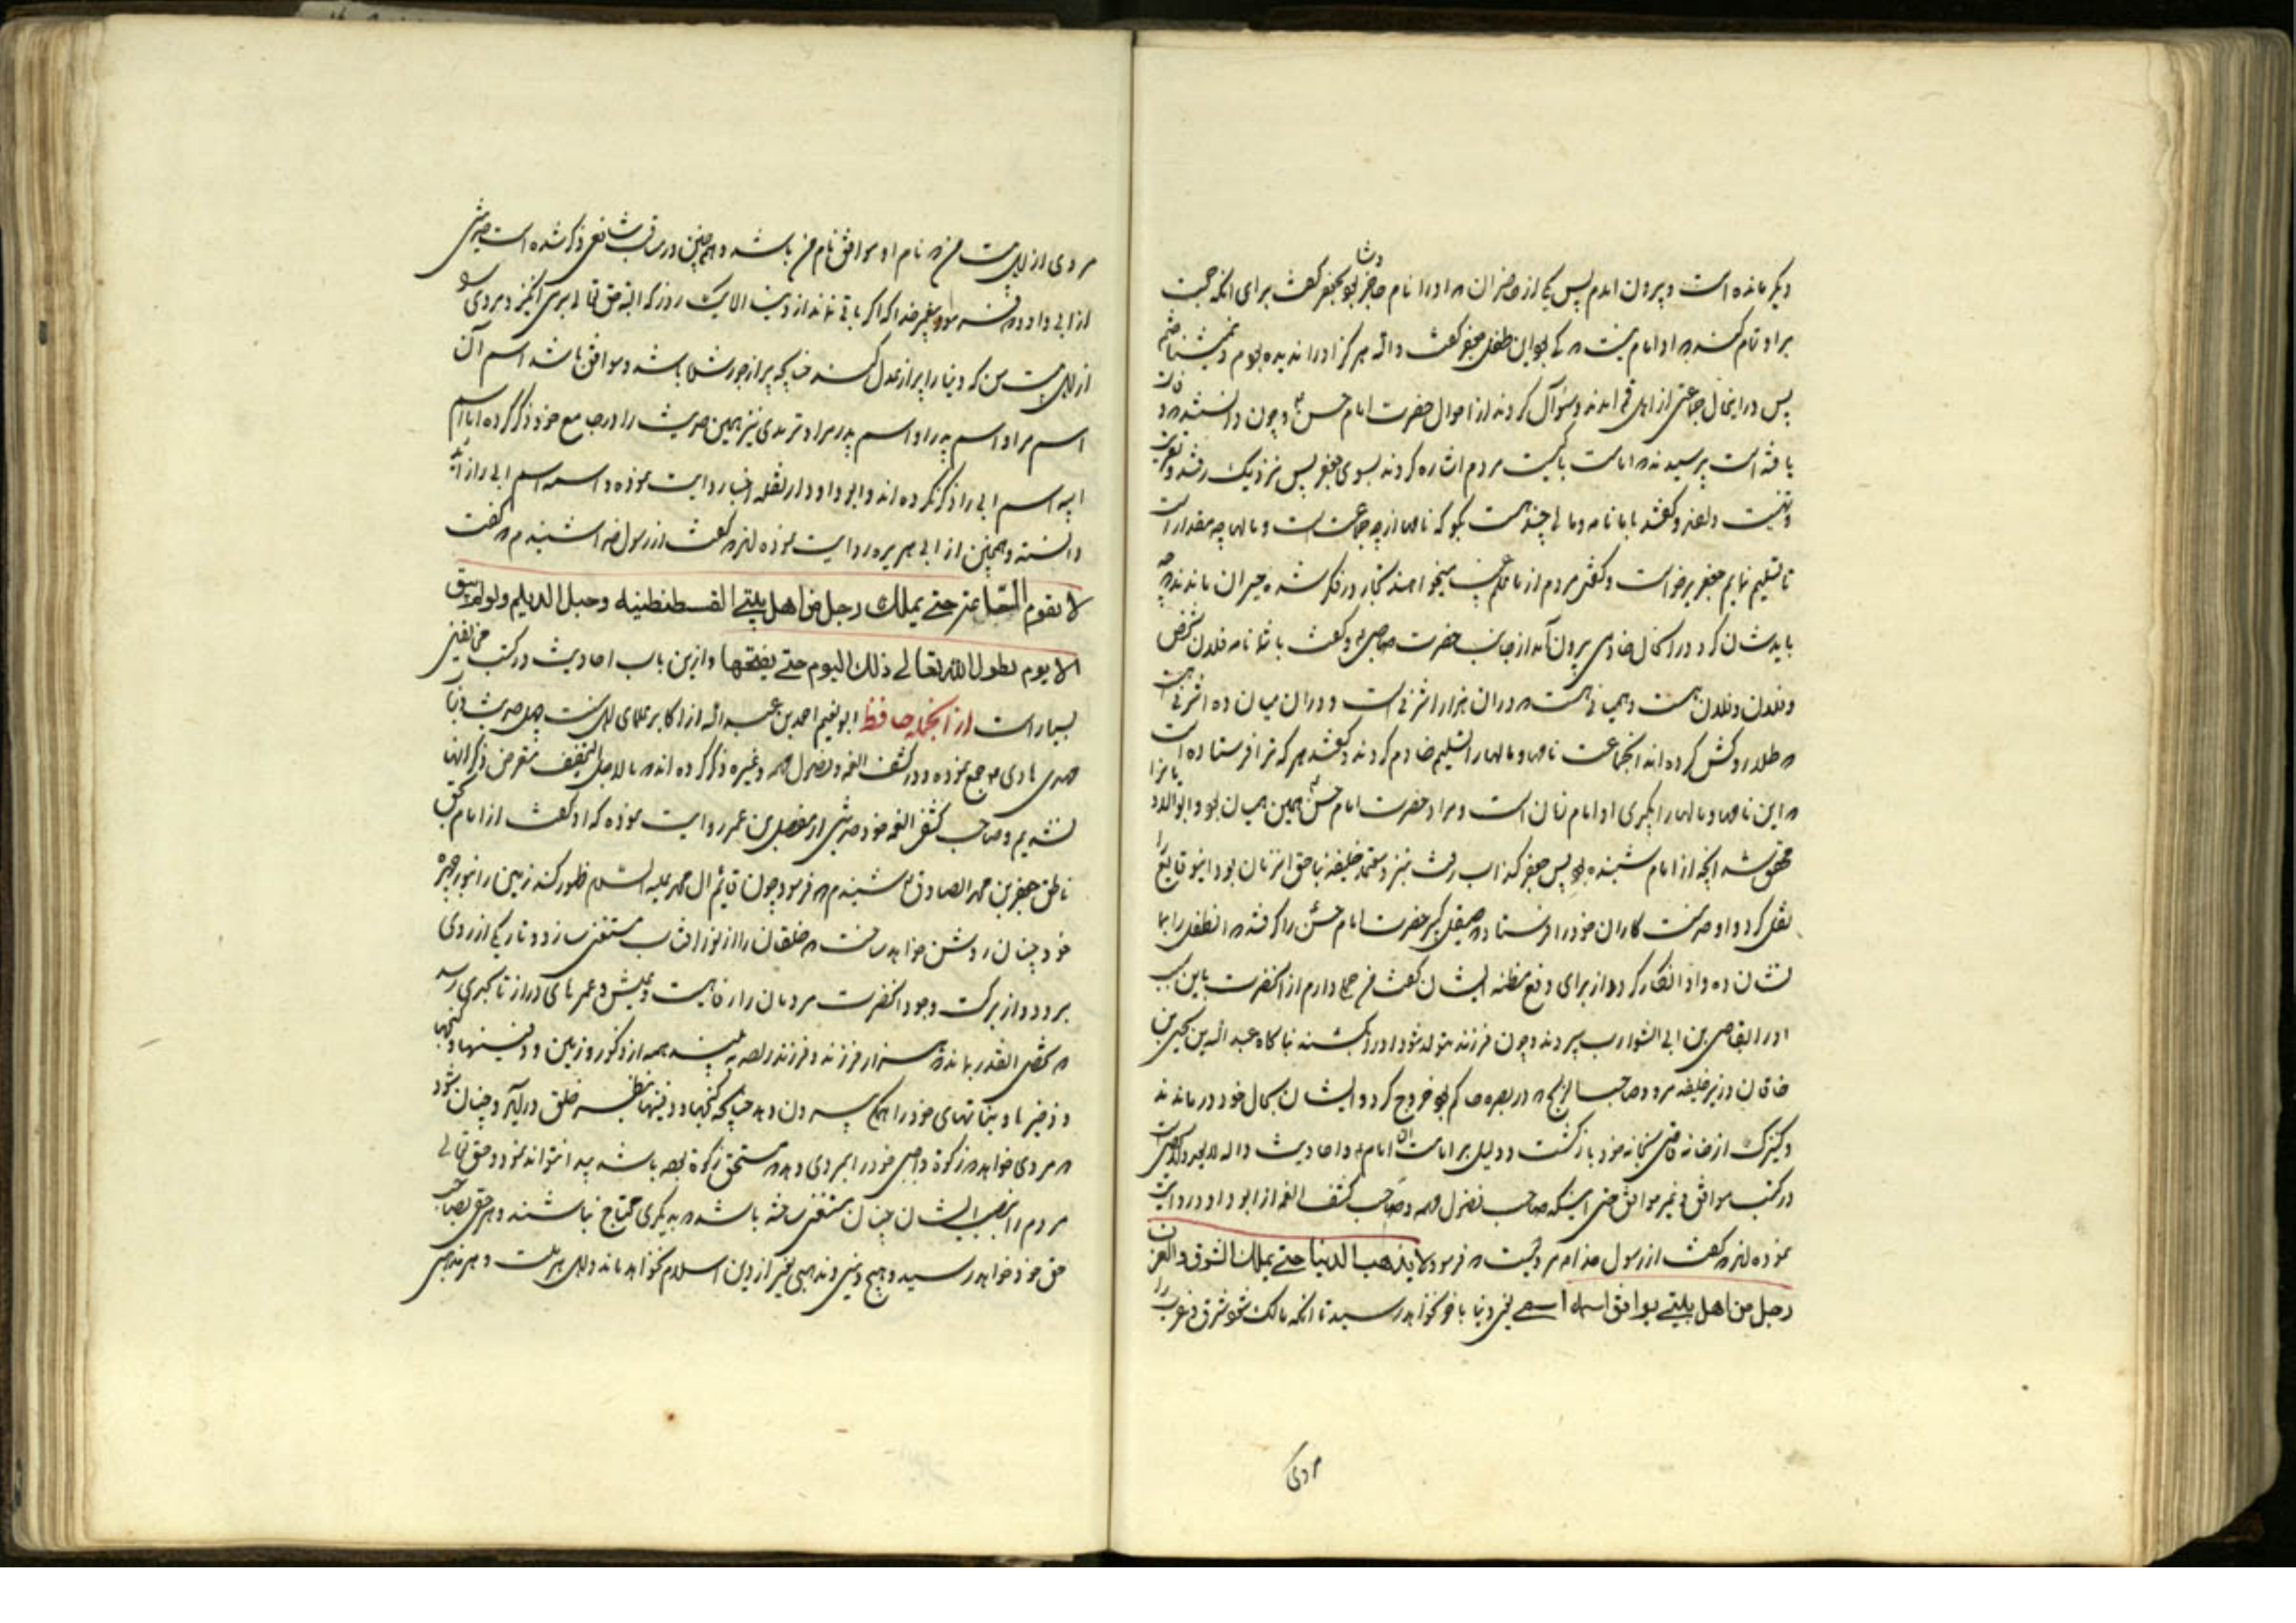 دیکر مانده است و بیرون امدم پس یکی از حاضران که او را نام حاجز وشا بود بجعفر کفت برای انکه حجت
بر او تمام کند که او امام نیست که کی بود این طفل جعفر کفت والله هرکز او را ندیده بودم و نمیشناختم
پس در اینحال جماعتی از اهل قم امدند و سؤال کردند از احوال حضرت امام حسن و چون دانستند که وفات
یافته است پرسیدند که امامت با کیست مردم اشاره کردند بسوی جعفر پس نزدیک رفتند و تعزیت
و تهنیت دادند و کفتند با ما نامه و مالی چند هست بکو که نامها از چه جماعت است و مالها چه مقدار است
تا تسلیم نمایم جعفر برخواست و کفت مردم از ما علم غیب میخواهند تجار در فکر شده حیران ماندند که چه
باید شان کرد در انحال خادمی بیرون آمد از جانب حضرت صاحب و کفت با شما نامه فلان شخص
و فلان و فلان هست و همیانی هست که در ان هزار اشرفی است و در ان میان ده اشرفی هست
که طلا روکش کرده اند انجماعت نامها و مالها را تسلیم خادم کردند و کفتند هر که ترا فرستاده است
که این نامها و مالها را بکیری او امام زمان است و مراد حضرت امام حسن همین همیان بود و ابوالادیان را
محقق شد انچه از امام شنیده بود پس جعفر کذاب رفت بنزد معتمد خلیفه بناحق انزمان بود و اینوقایع را
نقل کرد و او خدمت کاران خود را فرستاد که صیقل کنیز حضرت امام حسن را کرفتند که انطفل را بما
نشان ده و او انکار کرد و از برای دفع مظنه ایشان کفت من حملی دارم از انحضرت باین سبب
او را بقاضی بن ابی الشوارب سپردند و چون فرزند متولد شود او را بکشند بناکاه عبد الله بن یحیی بن
خاقان وزیر خلیفه مرد و صاحب الزنج که در بصره حاکم بود خروج کرد و ایشان بحال خود درماندند
و کنیزک از خانه قاضی بخانه خود باز کشت و دلیل بر امامت ان امام و احادیث داله
در کتب موافق و غیر موافق حتی اینکه صاحب فصول مهمه و صاحب کشف الغمه از ابو داود روایت
نموده اند که کفت از رسول خدا مرویست که فرمود لا یذهب الدنیا حتی یملک الشرق والغرب
رجل من اهل بیتی یوافق اسمه اسمی یعنی دنیا باخر نخواهد رسید تا انکه مالک شود شرق و غرب را
مردی
مردی از اهل بیت من که نام او موافق نام من باشد و همچنین در مناقب شافعی ذکر شده است حدیثی
از ابی داود که پیغمبر خدا که اکر باقی نماند از دنیا الا یک روز که البته حق تعالی برمی انکیزد مردی را
از اهل بیت من که دنیا را پر از عدل کند چنانچه پر از جور شده باشد و موافق باشد اسم آن
اسم مرا و اسم پدر او اسم پدر مرا و ترمدی نیز همین حدیث را در جامع خود ذکر کرده اما اسم
ابیه اسم ابی را ذکر نکرده اند و ابو داود از نقله اخبار روایت نموده و اسمه اسم ابی را زاید
دانسته و همچنین از ابی هریره روایت نموده اند که کفت از رسول خدا شنیدم که کفت
لا یقوم الساعة حتی یملک رجل من اهل بیتی القسطنطینیه وجبل الدیلم ولو لم یبق
الا یوم یطول الله تعالی ذلک الیوم حتی یفتحها و از این باب احادیث در کتب مخالفین
بسیار است از انجمله حافظ ابو نعیم احمد بن عبد الله از اکابر علمای اهل سنت چهل حدیث در باب
مهدی هادی جمع نموده و در کشف الغمه و فصول مهمه و غیره ذکر کرده اند که ما لاجل التخفیف متعرض ذکر انها
نشدیم و صاحب کشف الغمه خود حدیثی از مفضل بن عمر روایت نموده که او کفت از امام بحق
ناطق جعفر بن محمد الصادق شنیدم که فرمود چون قائم ال محمد علیه السلام ظهور کند زمین را بنور چهره
خود چنان روشن خواهد ساخت که خلقان را از نور افتاب مستغنی سازد و تاریکی از روی
برود و از برکت وجود انحضرت مردمان را رفاهیت و عیش و عمرهای دراز تا بحدی رسد
که شخص انقدر بماند که هزار فرزند و فرزند زاده بیند همه از ذکور و زمین و دفینها و کنجها
و ذخیرها و نباتهای خود را همکی بیرون دهد چنانچه کنجها و دفینها بنظر خلق دراید و چنان شود
که مردی خواهد که زکوة واجبی خود را بمردی دهد که مستحق زکوة بوده باشد پیدا نتواند نمود و حق تعالی
مردم را بفضل ایشان چنان مستغنی ساخته باشد که بدیکری محتاج نباشند و هر حقی بصاحب
حق خود خواهد رسید و هیچ دینی و مذهبی بغیر از دین اسلام نخواهد ماند و اهل هر ملت و هر مذهبی